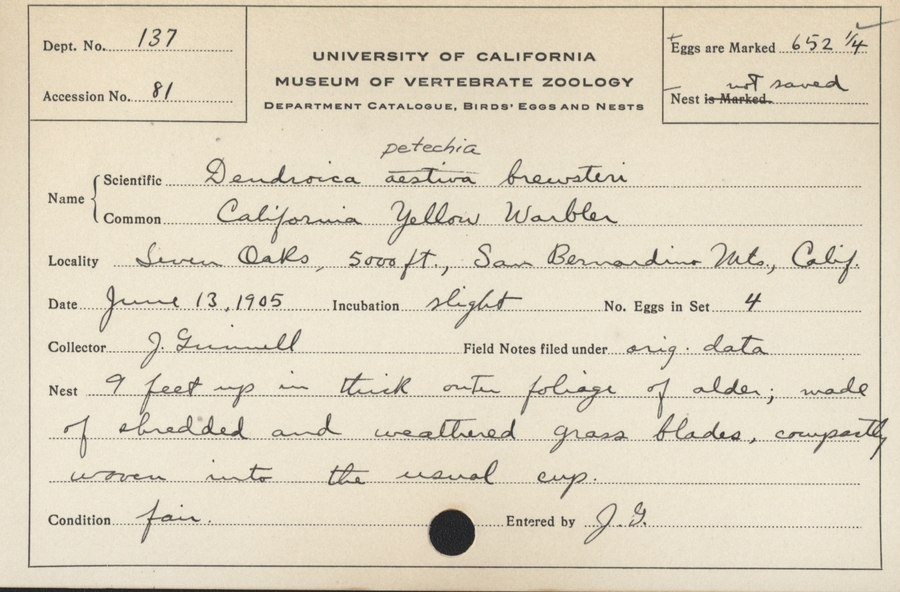 Dept. No. 137
Accession No. 81
UNIVERSITY OF CALIFORNIA
MUSEUM OF VERTEBRATE ZOOLOGY
DEPARTMENT CATALOGUE, BIRDS' EGGS AND NESTS
Eggs are Marked 652 1/4
not saved
Nest is Marked.
petechia
Name
Scientific Dendroica aestiva brewsteri
Common California Yellow Warbler
Locality Seven Oaks, 5000 ft., San Bernardino Mts., Calif.
Date June 13, 1905 Incubation slight No. Eggs in Set 4
Collector J. Grinnell Field Notes filed under orig. data
Nest 9 feet up in thick outer foliage of alder; made
of shredded and weathered grass blades, compactly
woven into the usual cup.
Condition fair. Entered by J. G.